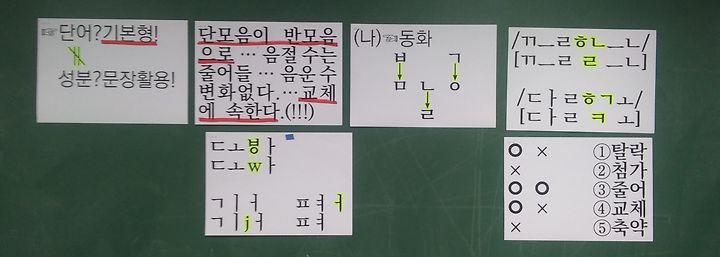 ☞단어?기본형!
∦
성분?문장활용!
단모음이 반모음
으로 … 음절수는
줄어들 … 음운수
변화없다.…교체
에 속한다.(!!!)
(나)☞동화
ㅂ ㄱ
ㅁ ㄴ ㅇ
ㄹ
/ㄲㅡㄹㅎㄴㅡㄴ/
[ㄲㅡㄹ ㄹ ㅡㄴ]
/ㄷㅏㄹㅎㄱㅗ/
[ㄷㅏㄹ ㅋ ㅗ]
ㄷㅗㅸㅏ
ㄷㅗwㅏ
ㄱㅣㅓ ㅍㅕㅓ
ㄱㅣjㅓ ㅍㅕ
○ × ①탈락
× ②첨가
○ ○ ③줄어
○ × ④교체
× ⑤축약